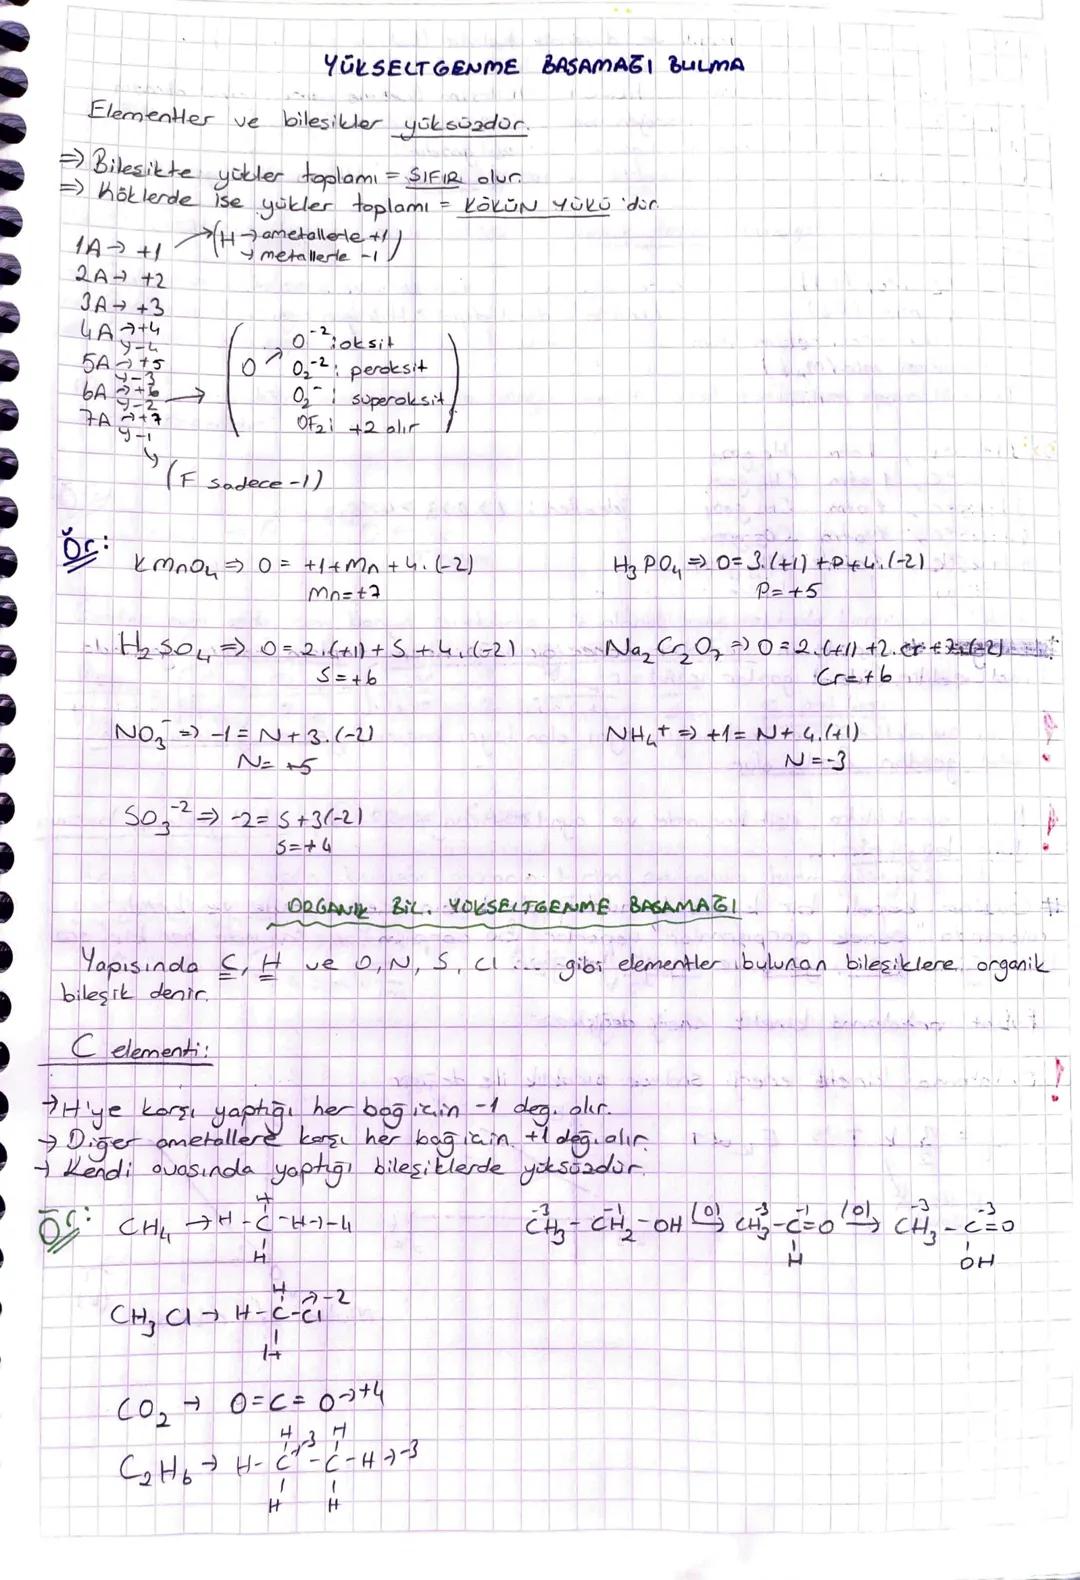 YÜKSELTGENME BASAMAĞI BULMA
Elementler ve bileşikler yüksüzdür.
⇒ Bileşikte yükler toplamı = SIFIR olur.
⇒ Köklerde ise yükler toplamı = KÖKÜN YÜKÜ'dür.
1A → +1 → (H → ametallerle +1
→ metallerle -1)
2A → +2
3A → +3
4A → +4
↘ -4
5A → +5
↘ -3
6A → +6
↘ -2
7A → +7
↘ -1
O ↗ O⁻² : oksit
O₂⁻² : peroksit
O₂⁻ : süperoksit
OF₂ : +2 alır
(F sadece -1)
Ör:
KMnO₄ ⇒ 0 = +1+Mn+4.(-2)
Mn=+7
H₃PO₄ ⇒ 0=3.(+1)+P+4.(-2)
P=+5
H₂SO₄ ⇒ 0=2.(+1)+S+4.(-2)
S=+6
Na₂Cr₂O₇ ⇒ 0=2.(+1)+2.Cr+7.(-2)
Cr=+6
NO₃⁻ ⇒ -1=N+3.(-2)
N=+5
NH₄⁺ ⇒ +1=N+4.(+1)
N=-3
SO₃⁻² ⇒ -2=S+3(-2)
S=+4
ORGANİK BİL. YÜKSELTGENME BASAMAĞI
Yapısında C, H ve O, N, S, Cl ... gibi elementler bulunan bileşiklere organik
bileşik denir.
C elementi:
→ H'ye karşı yaptığı her bağ için -1 değ. alır.
→ Diğer ametallere karşı her bağ için +1 değ. alır.
→ Kendi avasında yaptığı bileşiklerde yüksüzdür.
Ör:
H
CH₄ → H-C-H → -4
H
-3 -1 -3 -1 -3 -3
CH₃-CH₂-OH (O)→ CH₃-C=O (O)→ CH₃-C=O
H OH
H
CH₃Cl → H-C-Cl → -2
H
CO₂ → O=C=O → +4
H -3 H
C₂H₆ → H-C-C-H → -3
H H